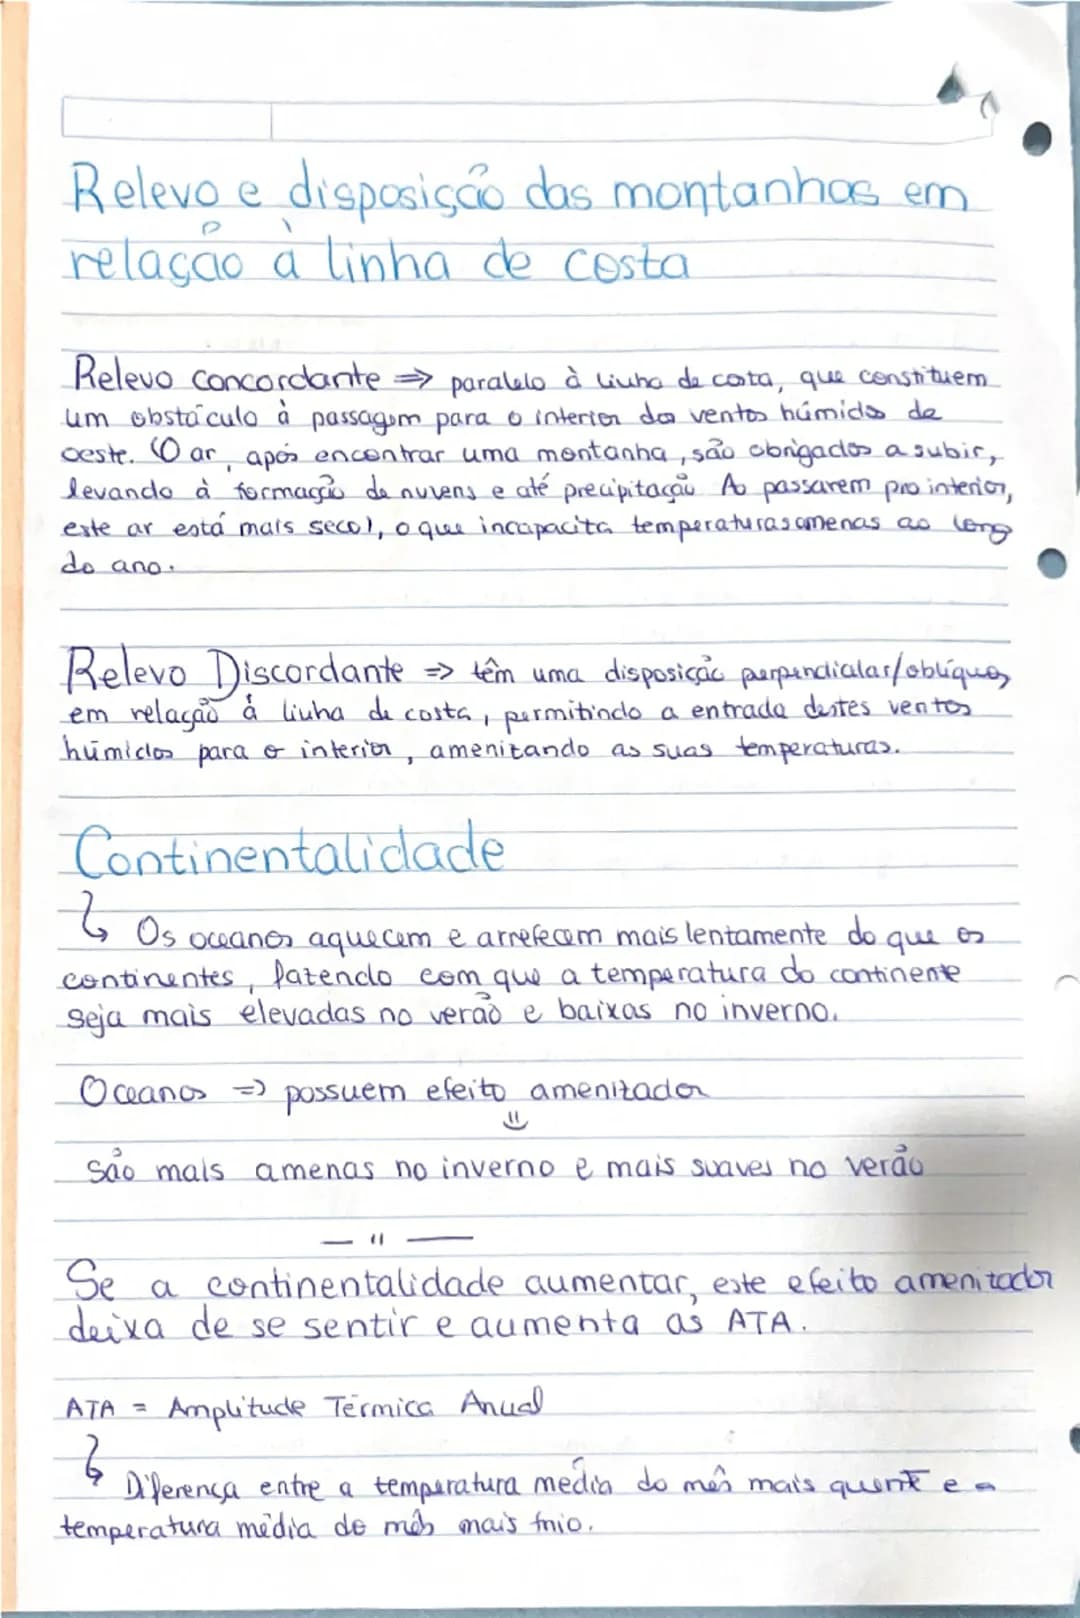 Relevo e disposição das montanhas em
relação à linha de costa
Relevo concordante => paralelo à linha de costa, que constituem
um obstáculo à passagem para o interior dos ventos húmidos de
oeste. O ar, após encontrar uma montanha, são obrigados a subir,
levando à formação de nuvens e até precipitação. Ao passarem pro interior,
este ar está mais seco!, o que incapacita temperaturas amenas ao longo
do ano.
Relevo Discordante => têm uma disposição perpendicular/oblíqua,
em relação à linha de costa, permitindo a entrada destes ventos
húmidos para o interior, amenizando as suas temperaturas.
Continentalidade
↳ Os oceanos aquecem e arrefecem mais lentamente do que os
continentes, fazendo com que a temperatura do continente
seja mais elevadas no verão e baixas no inverno.
Oceanos => possuem efeito amenizador
são mais amenas no inverno e mais suaves no verão
— " —
Se a continentalidade aumentar, este efeito amenizador
deixa de se sentir e aumenta as ATA.
ATA = Amplitude Térmica Anual
↳ Diferença entre a temperatura média do mês mais quente e a
temperatura média do mês mais frio.